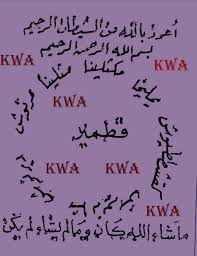 أعوذ بالله من الشيطان الرجيم
بسم الله الرحمن الرحيم
KWA
مكثلينا
مثلينا
KWA
يمليخا
KWA
قطمير
KWA
KWA
KWA
KWA
ماشاء الله كان ومالم يشاء لم يكن